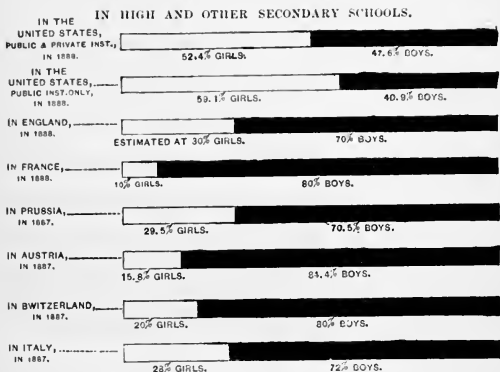 IN HIGH AND OTHER SECONDARY SCHOOLS.
IN THE
UNITED STATES,
PUBLIC & PRIVATE INST.,
IN 1888.
52.4% GIRLS.
47.6% BOYS.
IN THE
UNITED STATES,
PUBLIC INST. ONLY,
IN 1888.
59.1% GIRLS.
40.9% BOYS.
IN ENGLAND,
IN 1888.
ESTIMATED AT 30% GIRLS.
70% BOYS.
IN FRANCE,
IN 1888.
10% GIRLS.
80% BOYS.
IN PRUSSIA,
IN 1887.
29.5% GIRLS.
70.5% BOYS.
IN AUSTRIA,
IN 1887.
GIRLS.
BOYS.
IN SWITZERLAND,
IN 1887.
20% GIRLS.
80% BOYS.
IN ITALY,
IN 1887.
28% GIRLS.
72% BOYS.